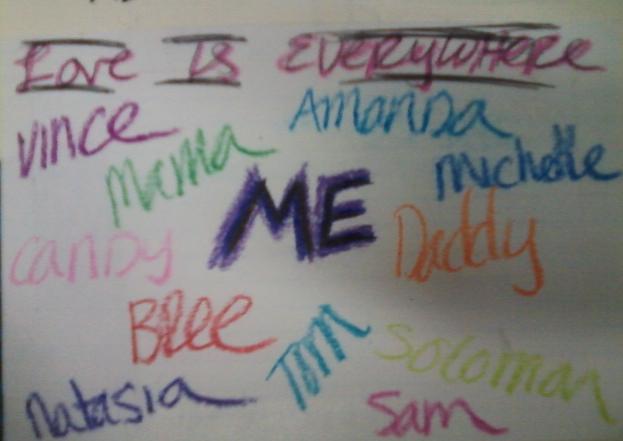 Love Is EVERYWHERE
Vince
AMANDA
Mama
Michelle
ME
CANDY
Daddy
BREE
Tom
Solomon
Natasia
Sam